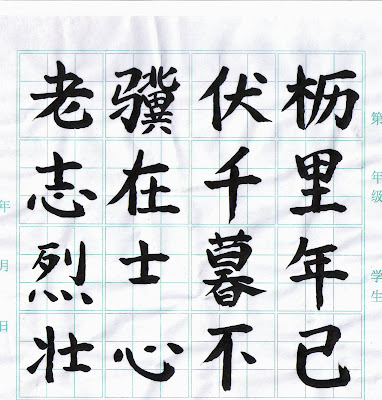 老骥伏枥
志在千里
烈士暮年
壮心不已
第 年级 学生
年 月 日